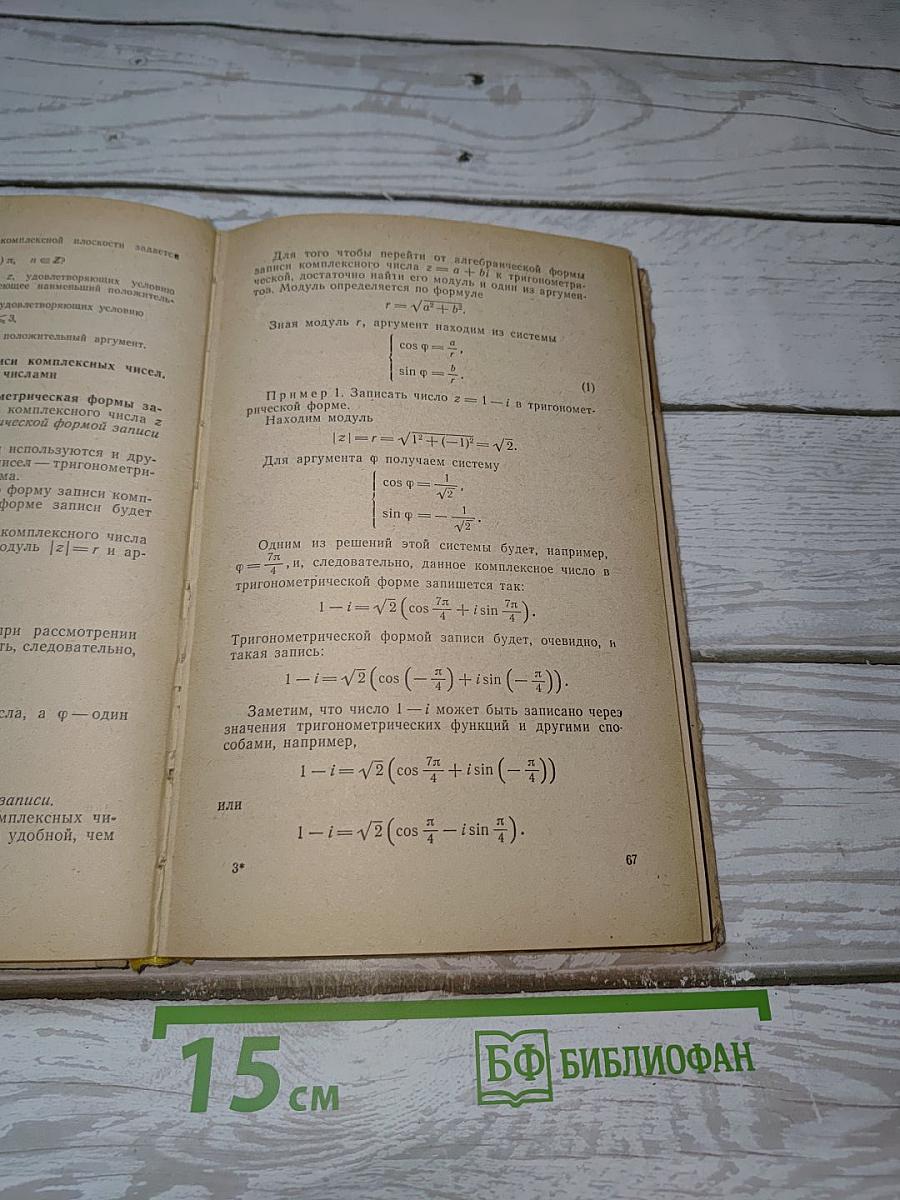 комплексной плоскости задается
)π, n ∈ Z?
z, удовлетворяющих условию
ющее наименьший положитель-
удовлетворяющих условию
⩽3,
положительный аргумент.
иси комплексных чисел.
числами
метрическая формы за-
комплексного числа z
ической формой записи
используются и дру-
исел — тригонометри-
ма.
форму записи комп-
форме записи будет
комплексного числа
одуль |z| = r и ар-
при рассмотрении
ть, следовательно,
сла, а φ — один
записи.
мплексных чи-
удобной, чем
Для того чтобы перейти от алгебраической формы
записи комплексного числа z = a + bi к тригонометри-
ческой, достаточно найти его модуль и один из аргумен-
тов. Модуль определяется по формуле
r = √(a² + b²).
Зная модуль r, аргумент находим из системы
cos φ = a/r,
sin φ = b/r.
(1)
Пример 1. Записать число z = 1 − i в тригономет-
рической форме.
Находим модуль
|z| = r = √(1² + (−1)²) = √2.
Для аргумента φ получаем систему
cos φ = 1/√2,
sin φ = − 1/√2.
Одним из решений этой системы будет, например,
φ = 7π/4, и, следовательно, данное комплексное число в
тригонометрической форме запишется так:
1 − i = √2 (cos 7π/4 + i sin 7π/4).
Тригонометрической формой записи будет, очевидно, и
такая запись:
1 − i = √2 (cos (− π/4) + i sin (− π/4)).
Заметим, что число 1 − i может быть записано через
значения тригонометрических функций и другими спо-
собами, например,
1 − i = √2 (cos 7π/4 + i sin (− π/4))
или
1 − i = √2 (cos π/4 − i sin π/4).
3*
67
15 см
БФ БИБЛИОФАН